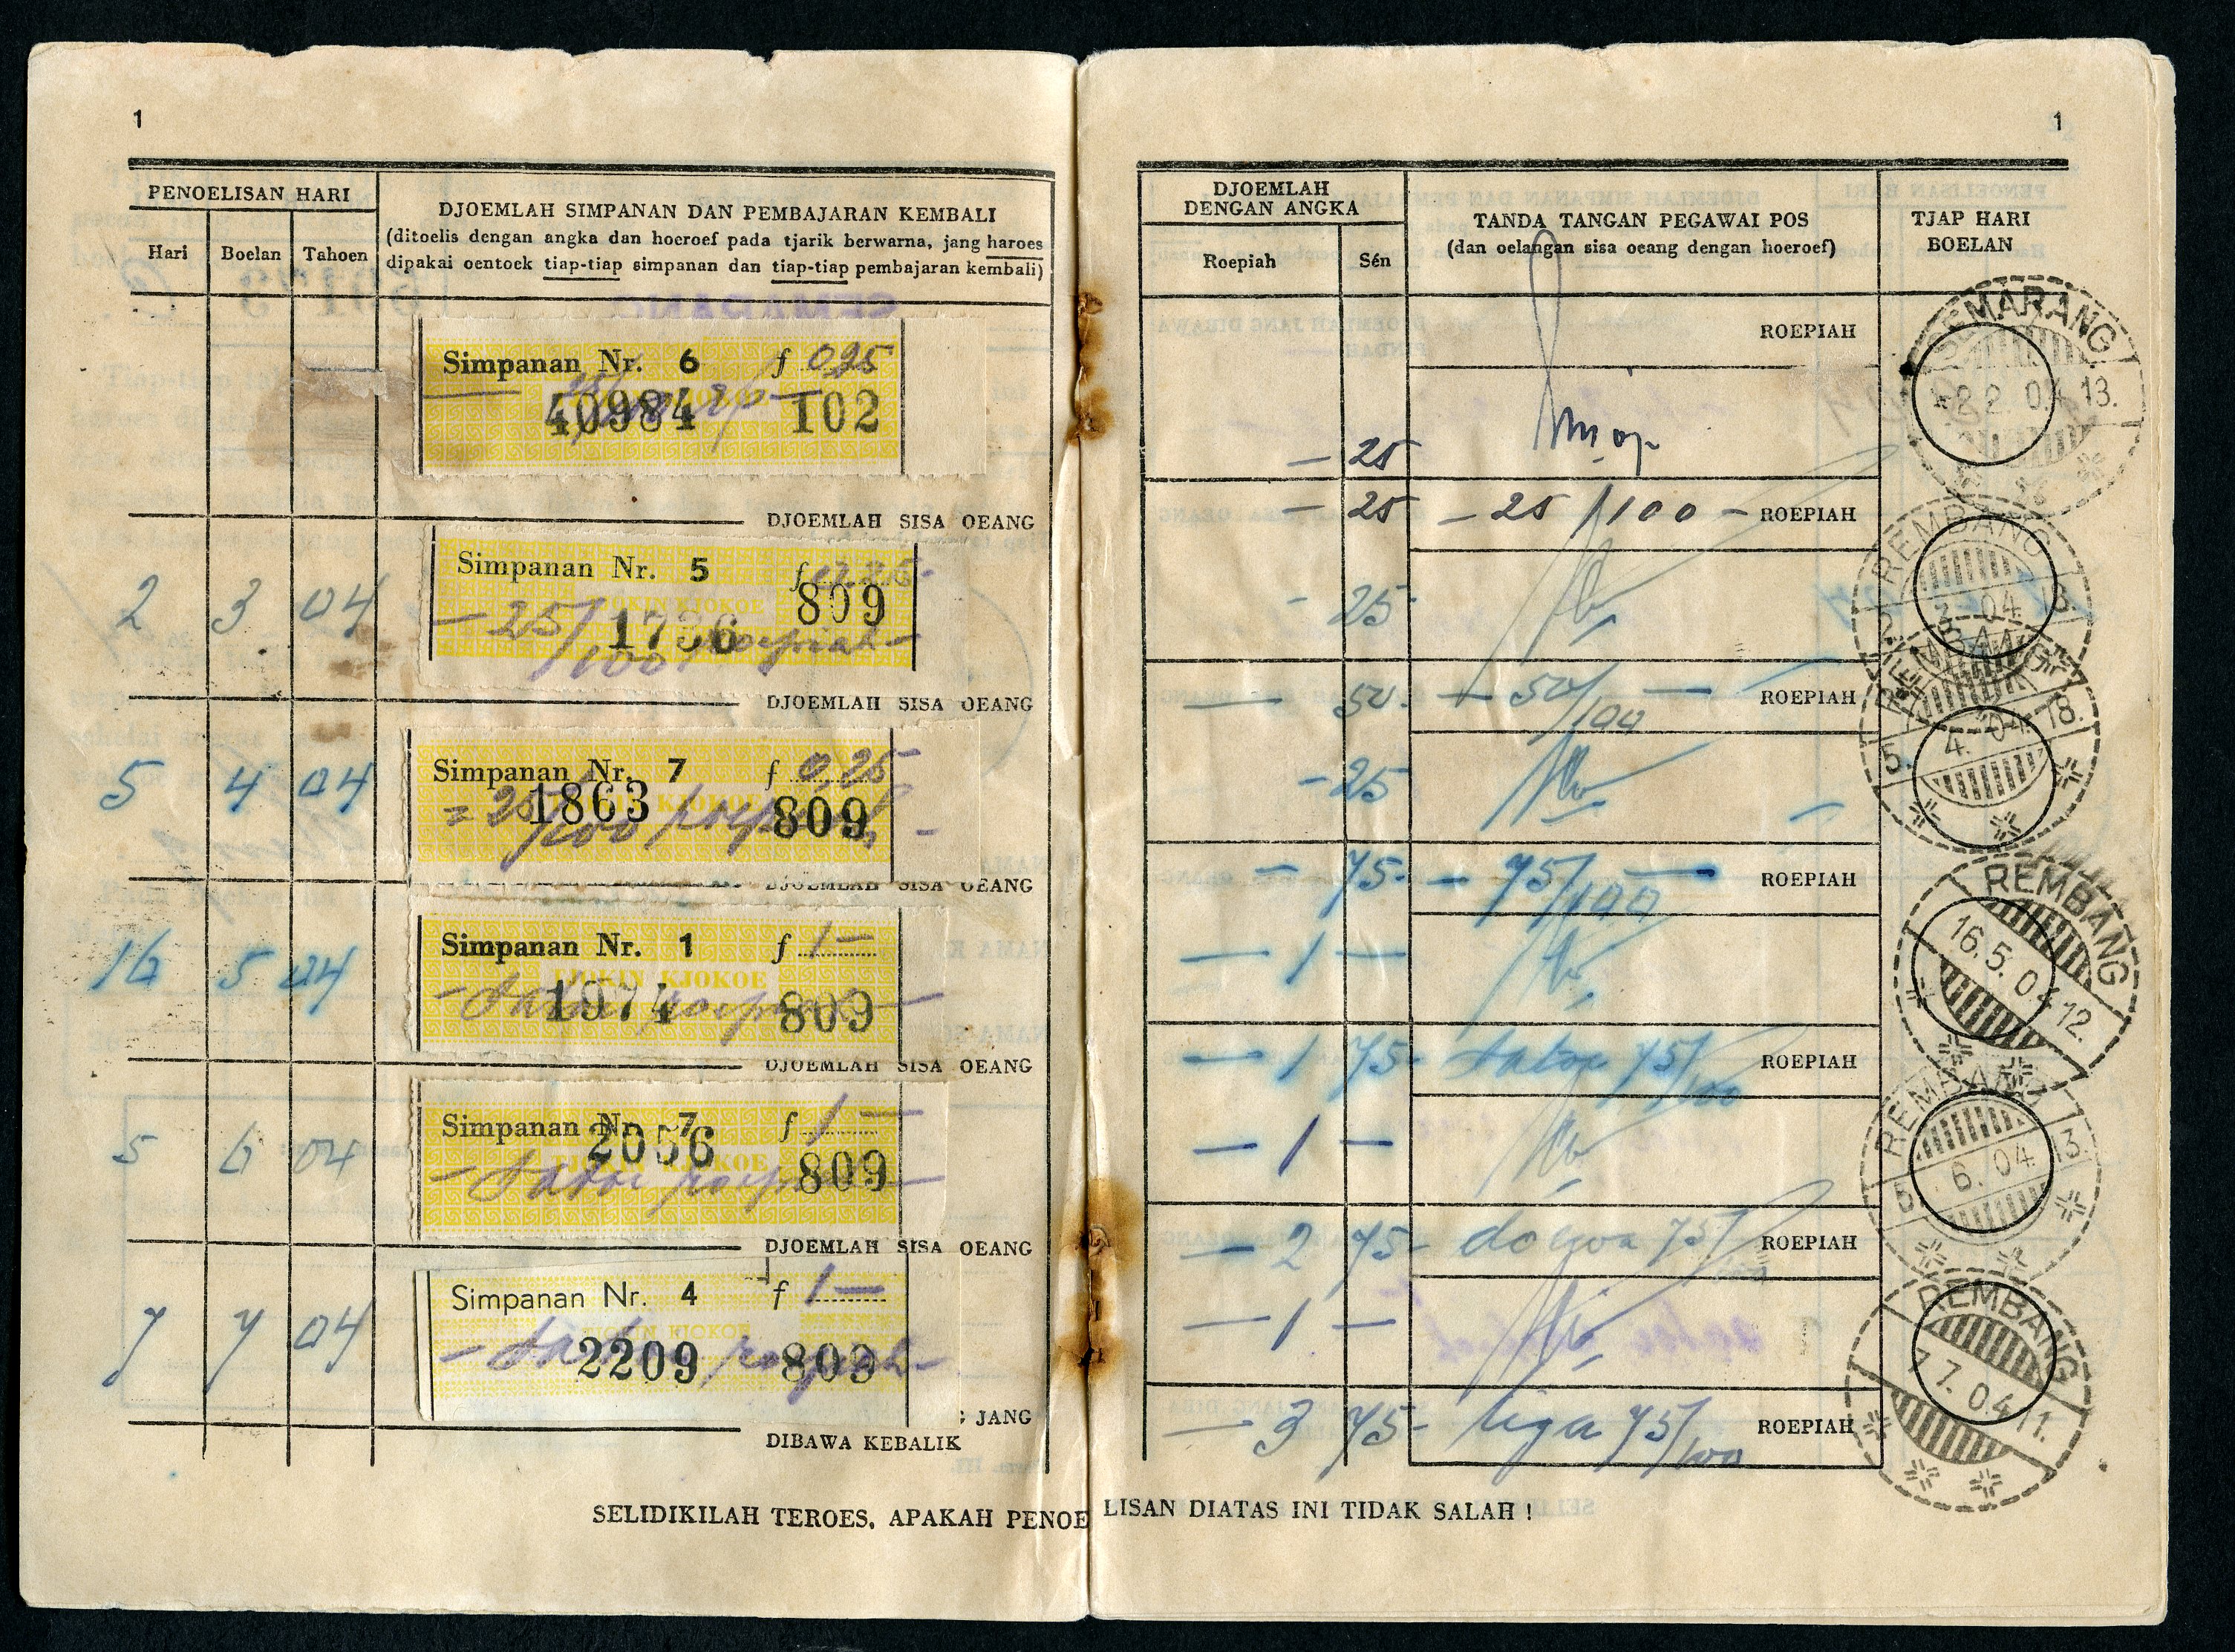 1
PENOELISAN HARI
Hari Boelan Tahoen
DJOEMLAH SIMPANAN DAN PEMBAJARAN KEMBALI
(ditoelis dengan angka dan hoeroef pada tjarik berwarna, jang haroes
dipakai oentoek tiap-tiap simpanan dan tiap-tiap pembajaran kembali)
Simpanan Nr. 6 f 0,25
40984 102
DJOEMLAH SISA OEANG
2 3 04
Simpanan Nr. 5 f 0,25-
809
- 25/100 roepiah -
1736
DJOEMLAH SISA OEANG
5 4 04
Simpanan Nr. 7 f 0,25
1863 809
= 25/100 roepiah -
DJOEMLAH SISA OEANG
16 5 04
Simpanan Nr. 1 f 1 —
TJOKIN KJOKOE
- satoe roepiah -
1974 809
DJOEMLAH SISA OEANG
5 6 04
Simpanan Nr. 7 f 1 —
2056
TJOKIN KJOKOE
- satoe roepiah -
809
DJOEMLAH SISA OEANG
7 7 04
Simpanan Nr. 4 f 1 —
TJOKIN KJOKOE
- satoe roepiah -
2209 809
JANG
DIBAWA KEBALIK
SELIDIKILAH TEROES, APAKAH PENOELISAN DIATAS INI TIDAK SALAH !
1
DJOEMLAH
DENGAN ANGKA
Roepiah Sén
TANDA TANGAN PEGAWAI POS
(dan oelangan sisa oeang dengan hoeroef)
TJAP HARI
BOELAN
ROEPIAH
— 25
— 25 — 25/100 — ROEPIAH
- 25-
— 50- — 50/100 — ROEPIAH
- 25
— 75- — 75/100 — ROEPIAH
— 1 —
— 1 75- satoe 75/100 ROEPIAH
— 1 —
— 2 75- doewa 75/ ROEPIAH
— 1 —
— 3 75- tiga 75/100 ROEPIAH
SEMARANG
22 04 13.
REMBANG
2. 3. 04. 13.
REMBANG
5. 4. 04. 13.
REMBANG
16. 5. 04 12.
REMBANG
5. 6. 04. 13.
REMBANG
7. 7. 04 11.